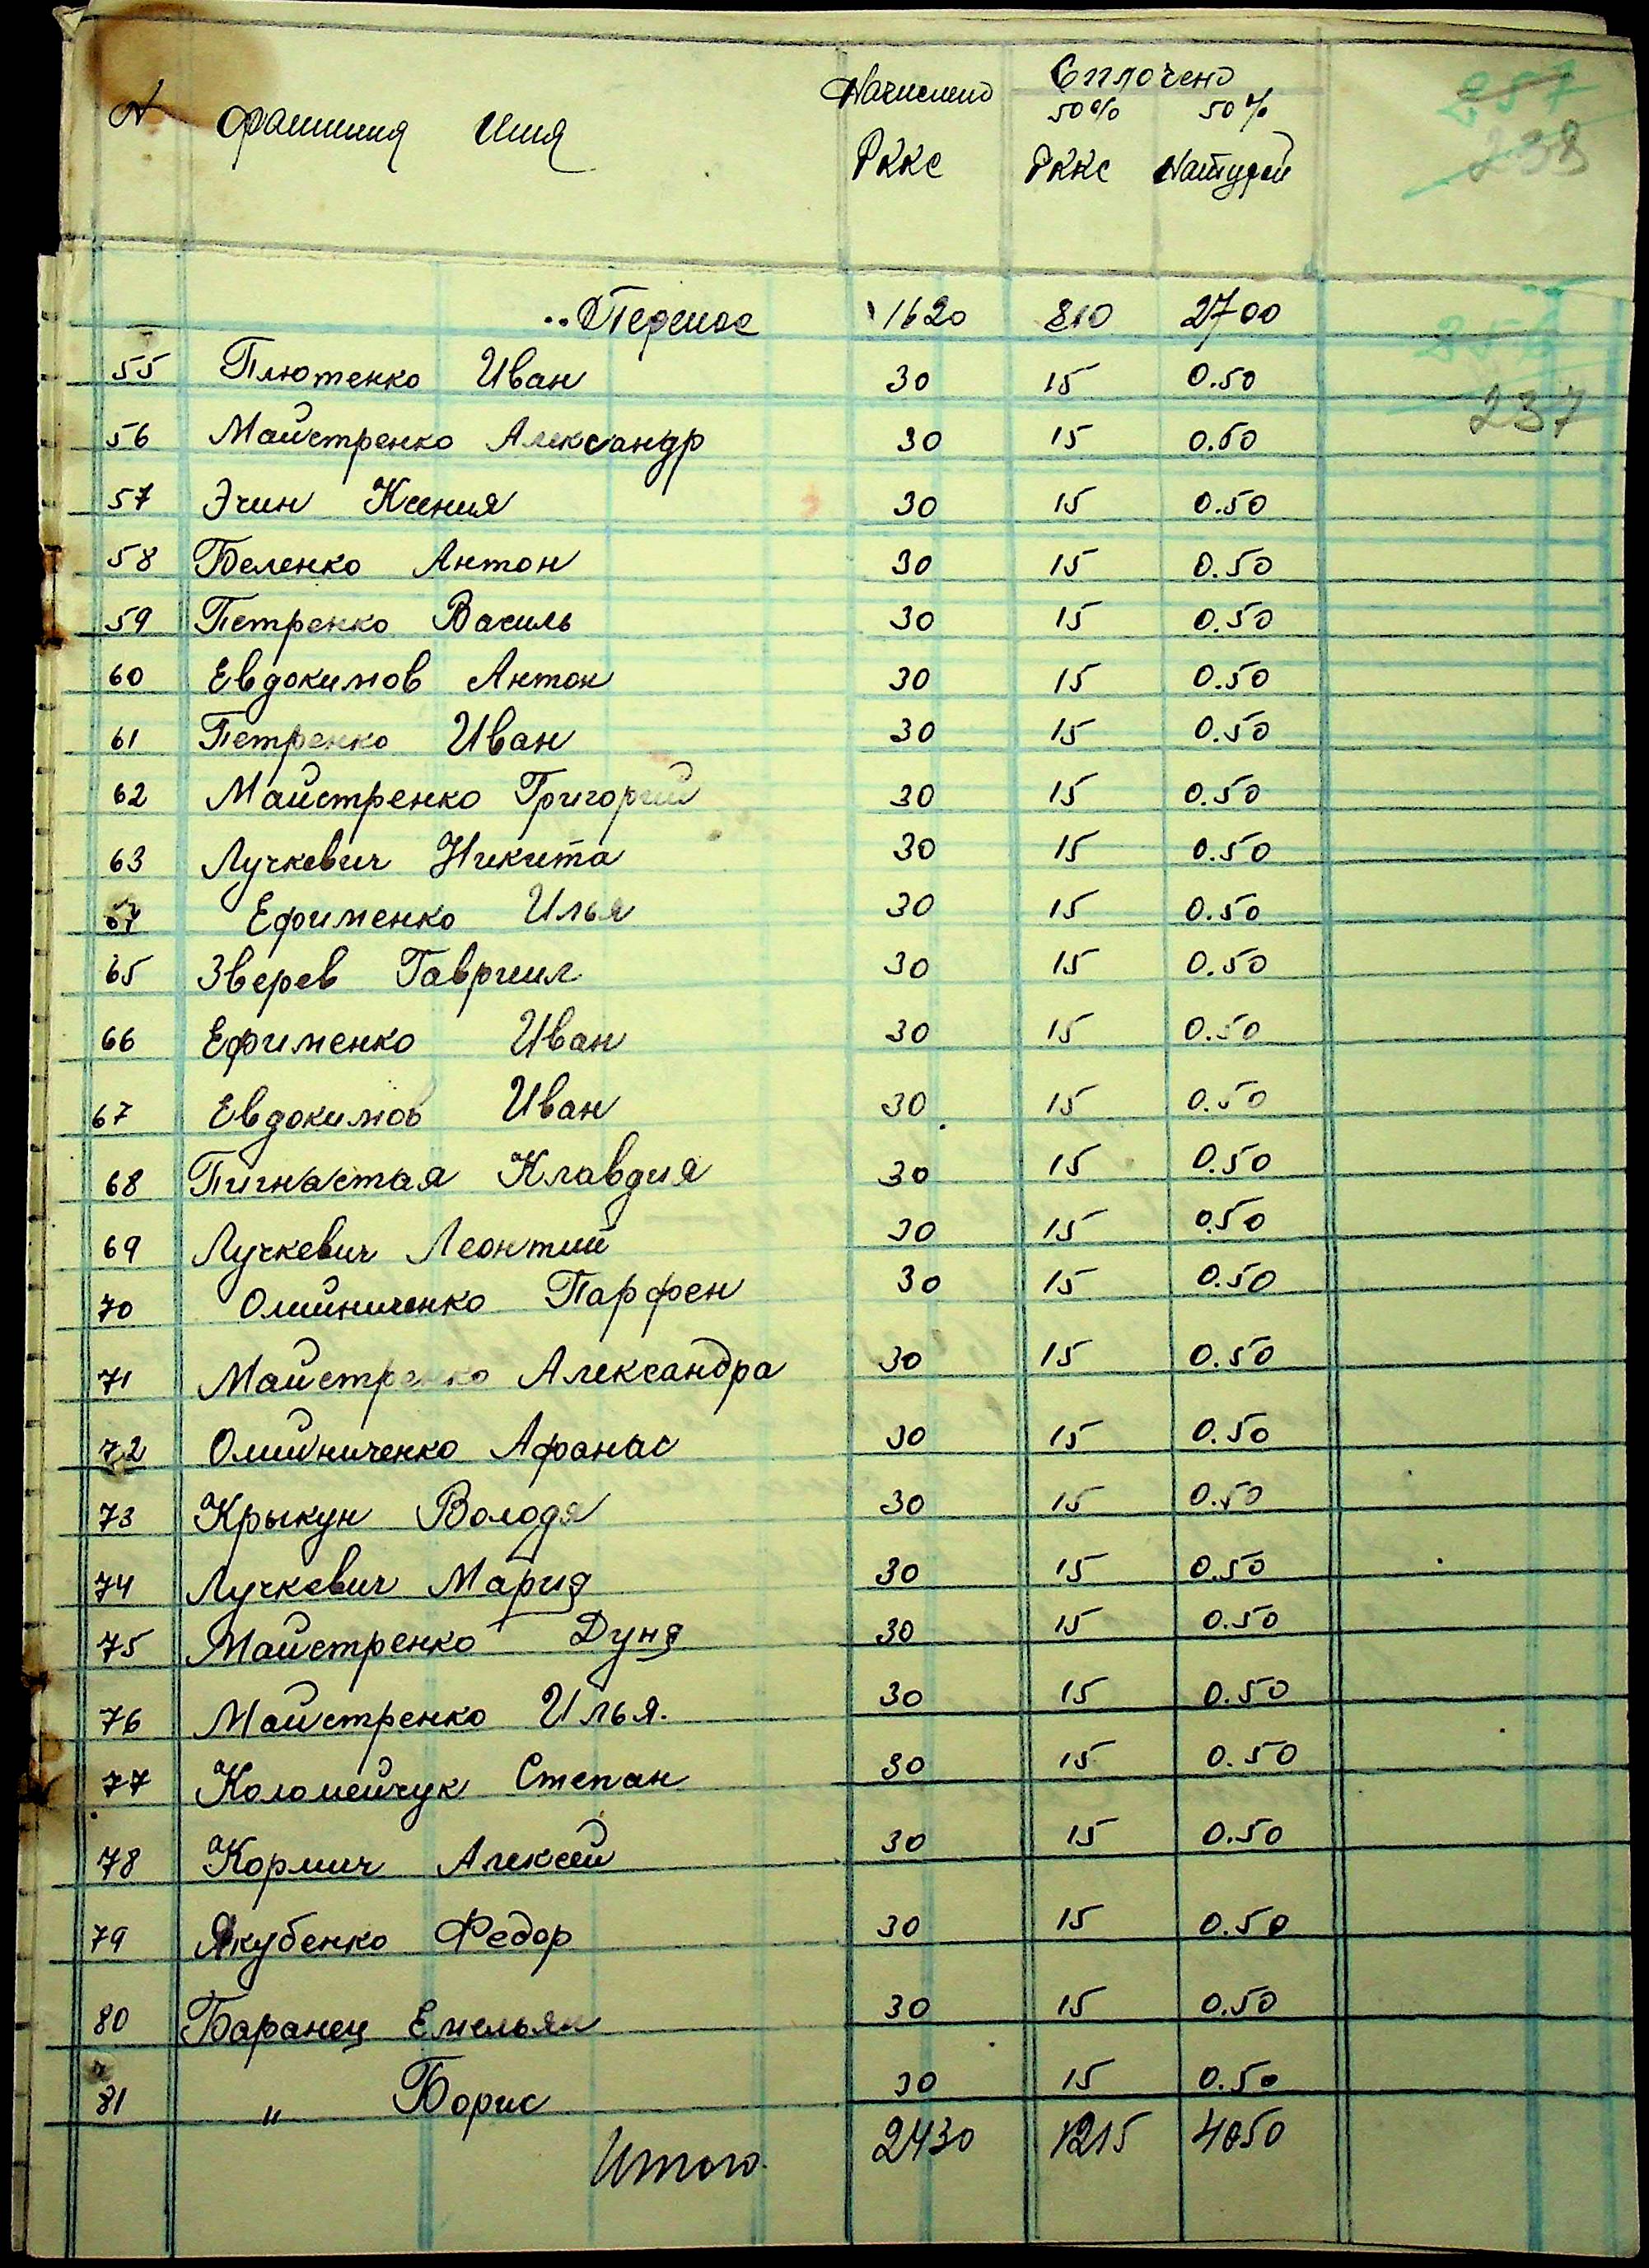 N Фамилия Имя Начислено Сплочено
50% 50%
РККС РККС Натурой
257
238
Перенос 1620 810 2700
237
55 Плютенко Иван 30 15 0.50
56 Майстренко Александр 30 15 0.50
57 Эчин Ксения 30 15 0.50
58 Беленко Антон 30 15 0.50
59 Петренко Василь 30 15 0.50
60 Евдокимов Антон 30 15 0.50
61 Петренко Иван 30 15 0.50
62 Майстренко Григорий 30 15 0.50
63 Лучкевич Никита 30 15 0.50
64 Ефименко Илья 30 15 0.50
65 Зверев Гавриил 30 15 0.50
66 Ефименко Иван 30 15 0.50
67 Евдокимов Иван 30 15 0.50
68 Пигнастая Клавдия 30 15 0.50
69 Лучкевич Леонтий 30 15 0.50
70 Олийниченко Парфен 30 15 0.50
71 Майстренко Александра 30 15 0.50
72 Олийниченко Афанас 30 15 0.50
73 Крыкун Володя 30 15 0.50
74 Лучкевич Мария 30 15 0.50
75 Майстренко Дуня 30 15 0.50
76 Майстренко Илья. 30 15 0.50
77 Коломейчук Степан 30 15 0.50
78 Кормич Алексей 30 15 0.50
79 Якубенко Федор 30 15 0.50
80 Баранец Емельян 30 15 0.50
81 " Борис 30 15 0.50
Итого. 2430 1215 4050